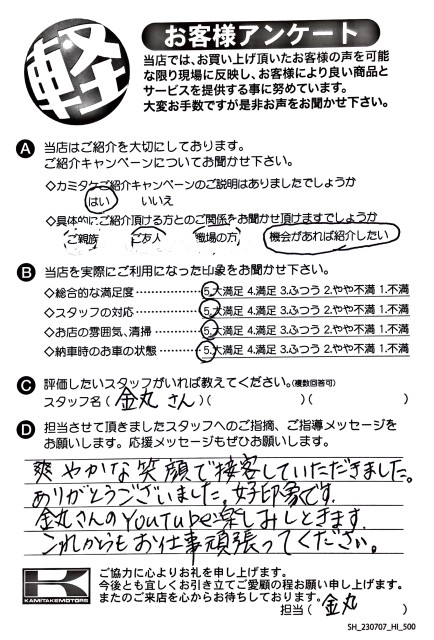 軽
お客様アンケート
当店では、お買い上げ頂いたお客様の声を可能
な限り現場に反映し、お客様により良い商品と
サービスを提供する事に努めています。
大変お手数ですが是非お声をお聞かせ下さい。
A 当店はご紹介を大切にしております。
ご紹介キャンペーンについてお聞かせ下さい。
◇カミタケご紹介キャンペーンのご説明はありましたでしょうか
はい いいえ
◇具体的にご紹介頂ける方とのご関係をお聞かせ頂けますでしょうか
ご親族 ご友人 職場の方 機会があれば紹介したい
B 当店を実際にご利用になった印象をお聞かせ下さい。
◇総合的な満足度……………5.大満足 4.満足 3.ふつう 2.やや不満 1.不満
◇スタッフの対応……………5.大満足 4.満足 3.ふつう 2.やや不満 1.不満
◇お店の雰囲気、清掃………5.大満足 4.満足 3.ふつう 2.やや不満 1.不満
◇納車時のお車の状態………5.大満足 4.満足 3.ふつう 2.やや不満 1.不満
C 評価したいスタッフがいれば教えてください。(複数回答可)
スタッフ名( 金丸さん )( )( )
D 担当させて頂きましたスタッフへのご指摘、ご指導メッセージを
お願いします。応援メッセージもぜひお願いします。
爽やかな笑顔で接客していただきました。
ありがとうございました。好印象です。
金丸さんのYouTube楽しみしときます。
これからもお仕事頑張ってください。
K
KAMITAKEMOTORS
ご協力に心よりお礼を申し上げます。
今後とも宜しくお引き立てご愛顧の程お願い申し上げます。
またのご来店を心からお待ちしております。
担当( 金丸 )
SH_230707_HI_500